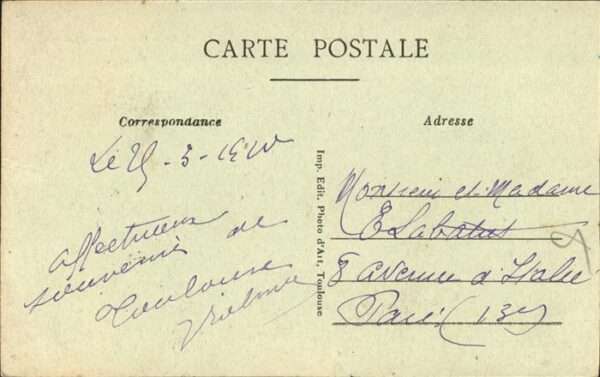 CARTE POSTALE
Correspondance
Adresse
Affectueux
souvenir de
Toulouse
Imp. Edit. Photo d'Art, Toulouse
Monsieur et Madame
E Labatut
8 avenue d'Italie
Paris (13e)